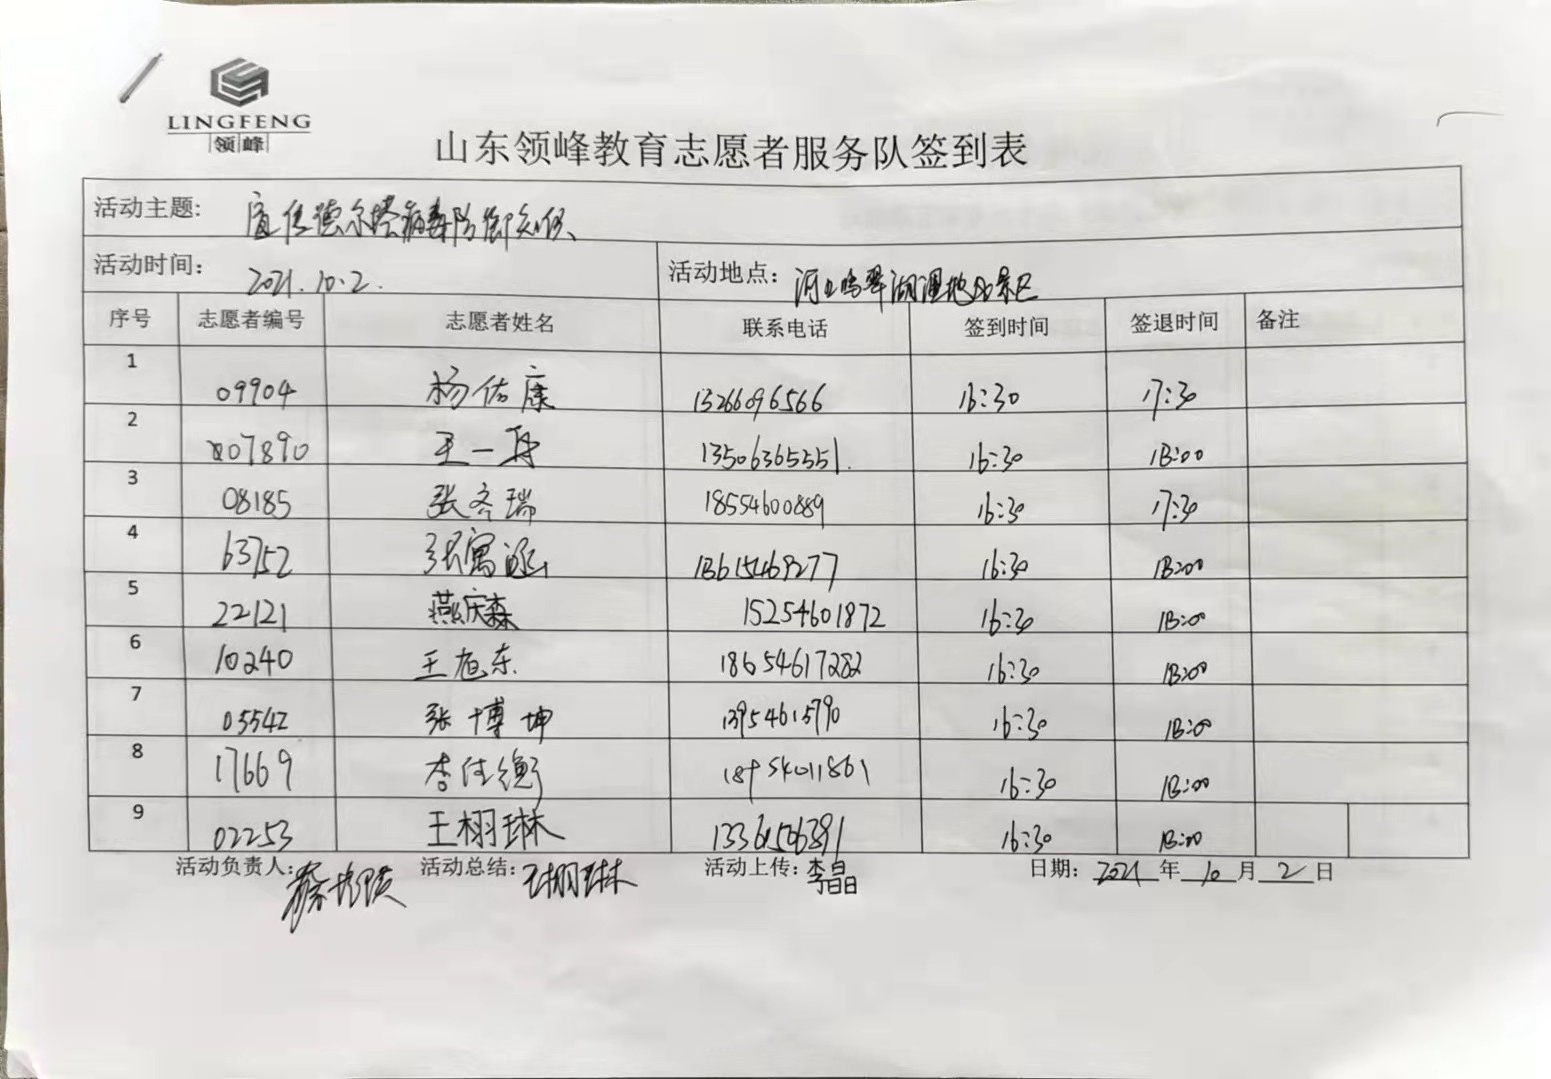 LINGFENG
领峰
山东领峰教育志愿者服务队签到表
活动主题: 宣传德尔塔病毒防御知识
活动时间: 2021.10.2.
活动地点: 湿地
序号 志愿者编号 志愿者姓名 联系电话 签到时间 签退时间 备注
1 09904 杨佑康 13266096566 16:30 17:30
2 007890 王一 13506365551. 16:30 18:00
3 08185 张齐瑞 18554600889 16:30 17:30
4 63752 张寓涵 13615469277 16:30 18:00
5 22121 燕庆森 15254601872 16:30 18:00
6 10240 王旭东 18654617282 16:30 18:00
7 05542 张博坤 13954615790 16:30 18:00
8 17669 李佳衡 18954011861 16:30 18:00
9 02253 王栩琳 13361506391 16:30 18:00
活动负责人: 蔡 活动总结: 王栩琳 活动上传: 李晶 日期: 2021 年 10 月 2 日